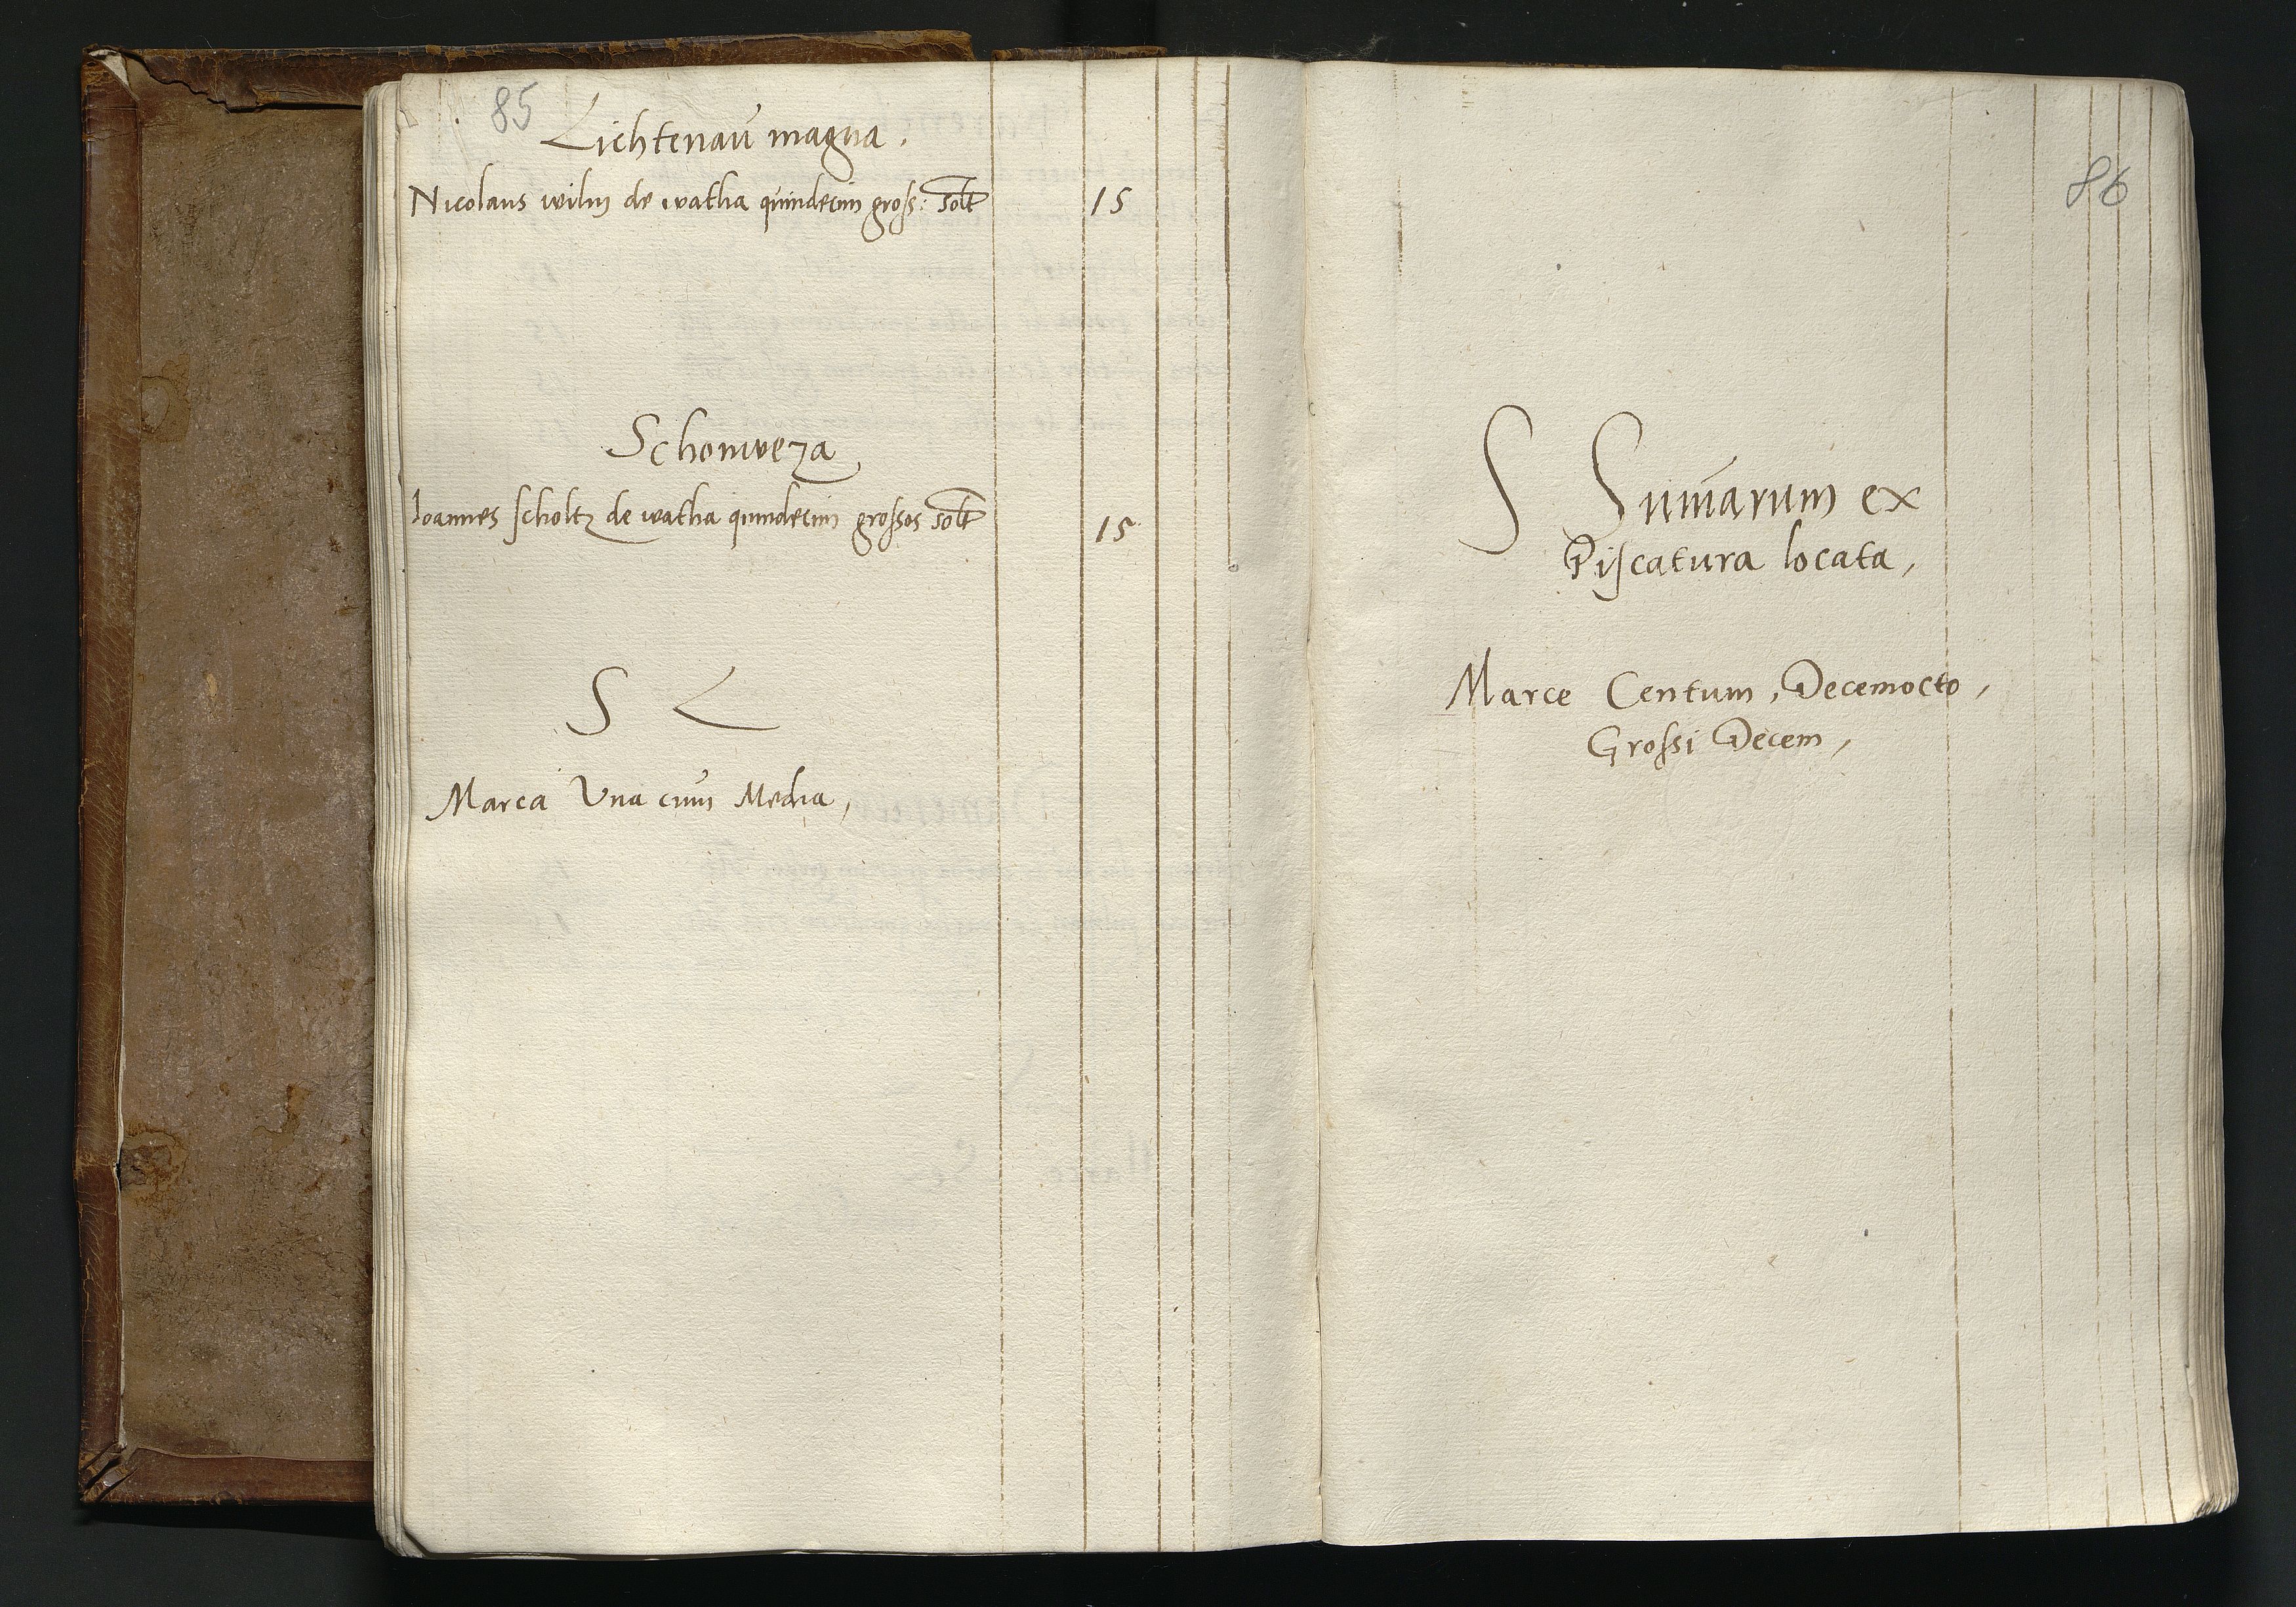 85
Lichtenaū magna.
Nicolaus wilm de watha quindecim gross: solt 15
Schonweza
Ioannes scholtz de watha quindecim grossos solt 15
S L
Marca Una cum Media,
86
S Sumarum ex
Piscatura locata,
Marce Centum, Decemocto,
Grossi Decem,